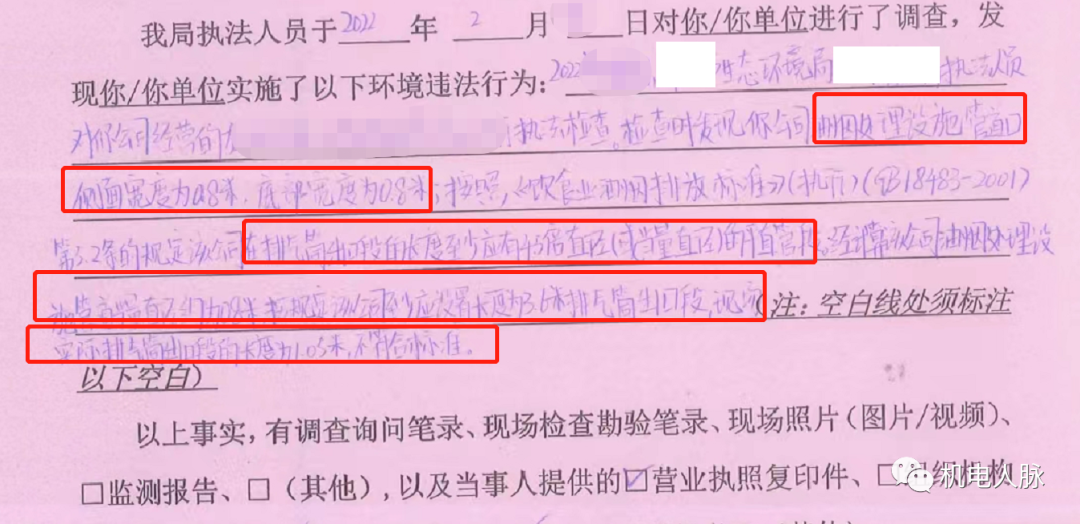 我局执法人员于2022年2月 日对你/你单位进行了调查，发
现你/你单位实施了以下环境违法行为：2022 生态环境局 执法人员
对你公司经营的 执法检查。检查时发现你公司油烟处理设施管道口
侧面宽度为0.8米、底部宽度为0.8米；按照《饮食业油烟排放标准》(执行)(GB18483-2001)
第5.2条的规定该公司在排气筒出口段的长度至少应有4.5倍直径(或当量直径)的平直管段；经计算该公司油烟处理设
施管当量直径约为0.8米 按规定该公司至少应设置长度为3.6米排气筒出口段，现场（注：空白线处须标注
实际排气筒出口段的长度为1.05米，不符合标准。
以下空白）
以上事实，有调查询问笔录、现场检查勘验笔录、现场照片(图片/视频)、
□监测报告、□（其他），以及当事人提供的☑营业执照复印件、□组织机构
机电人脉